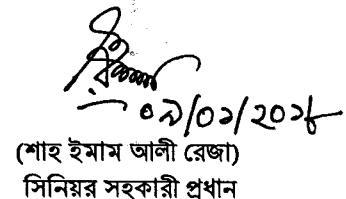 ০৯/০১/২০১৮
(শাহ ইমাম আলী রেজা)
সিনিয়র সহকারী প্রধান